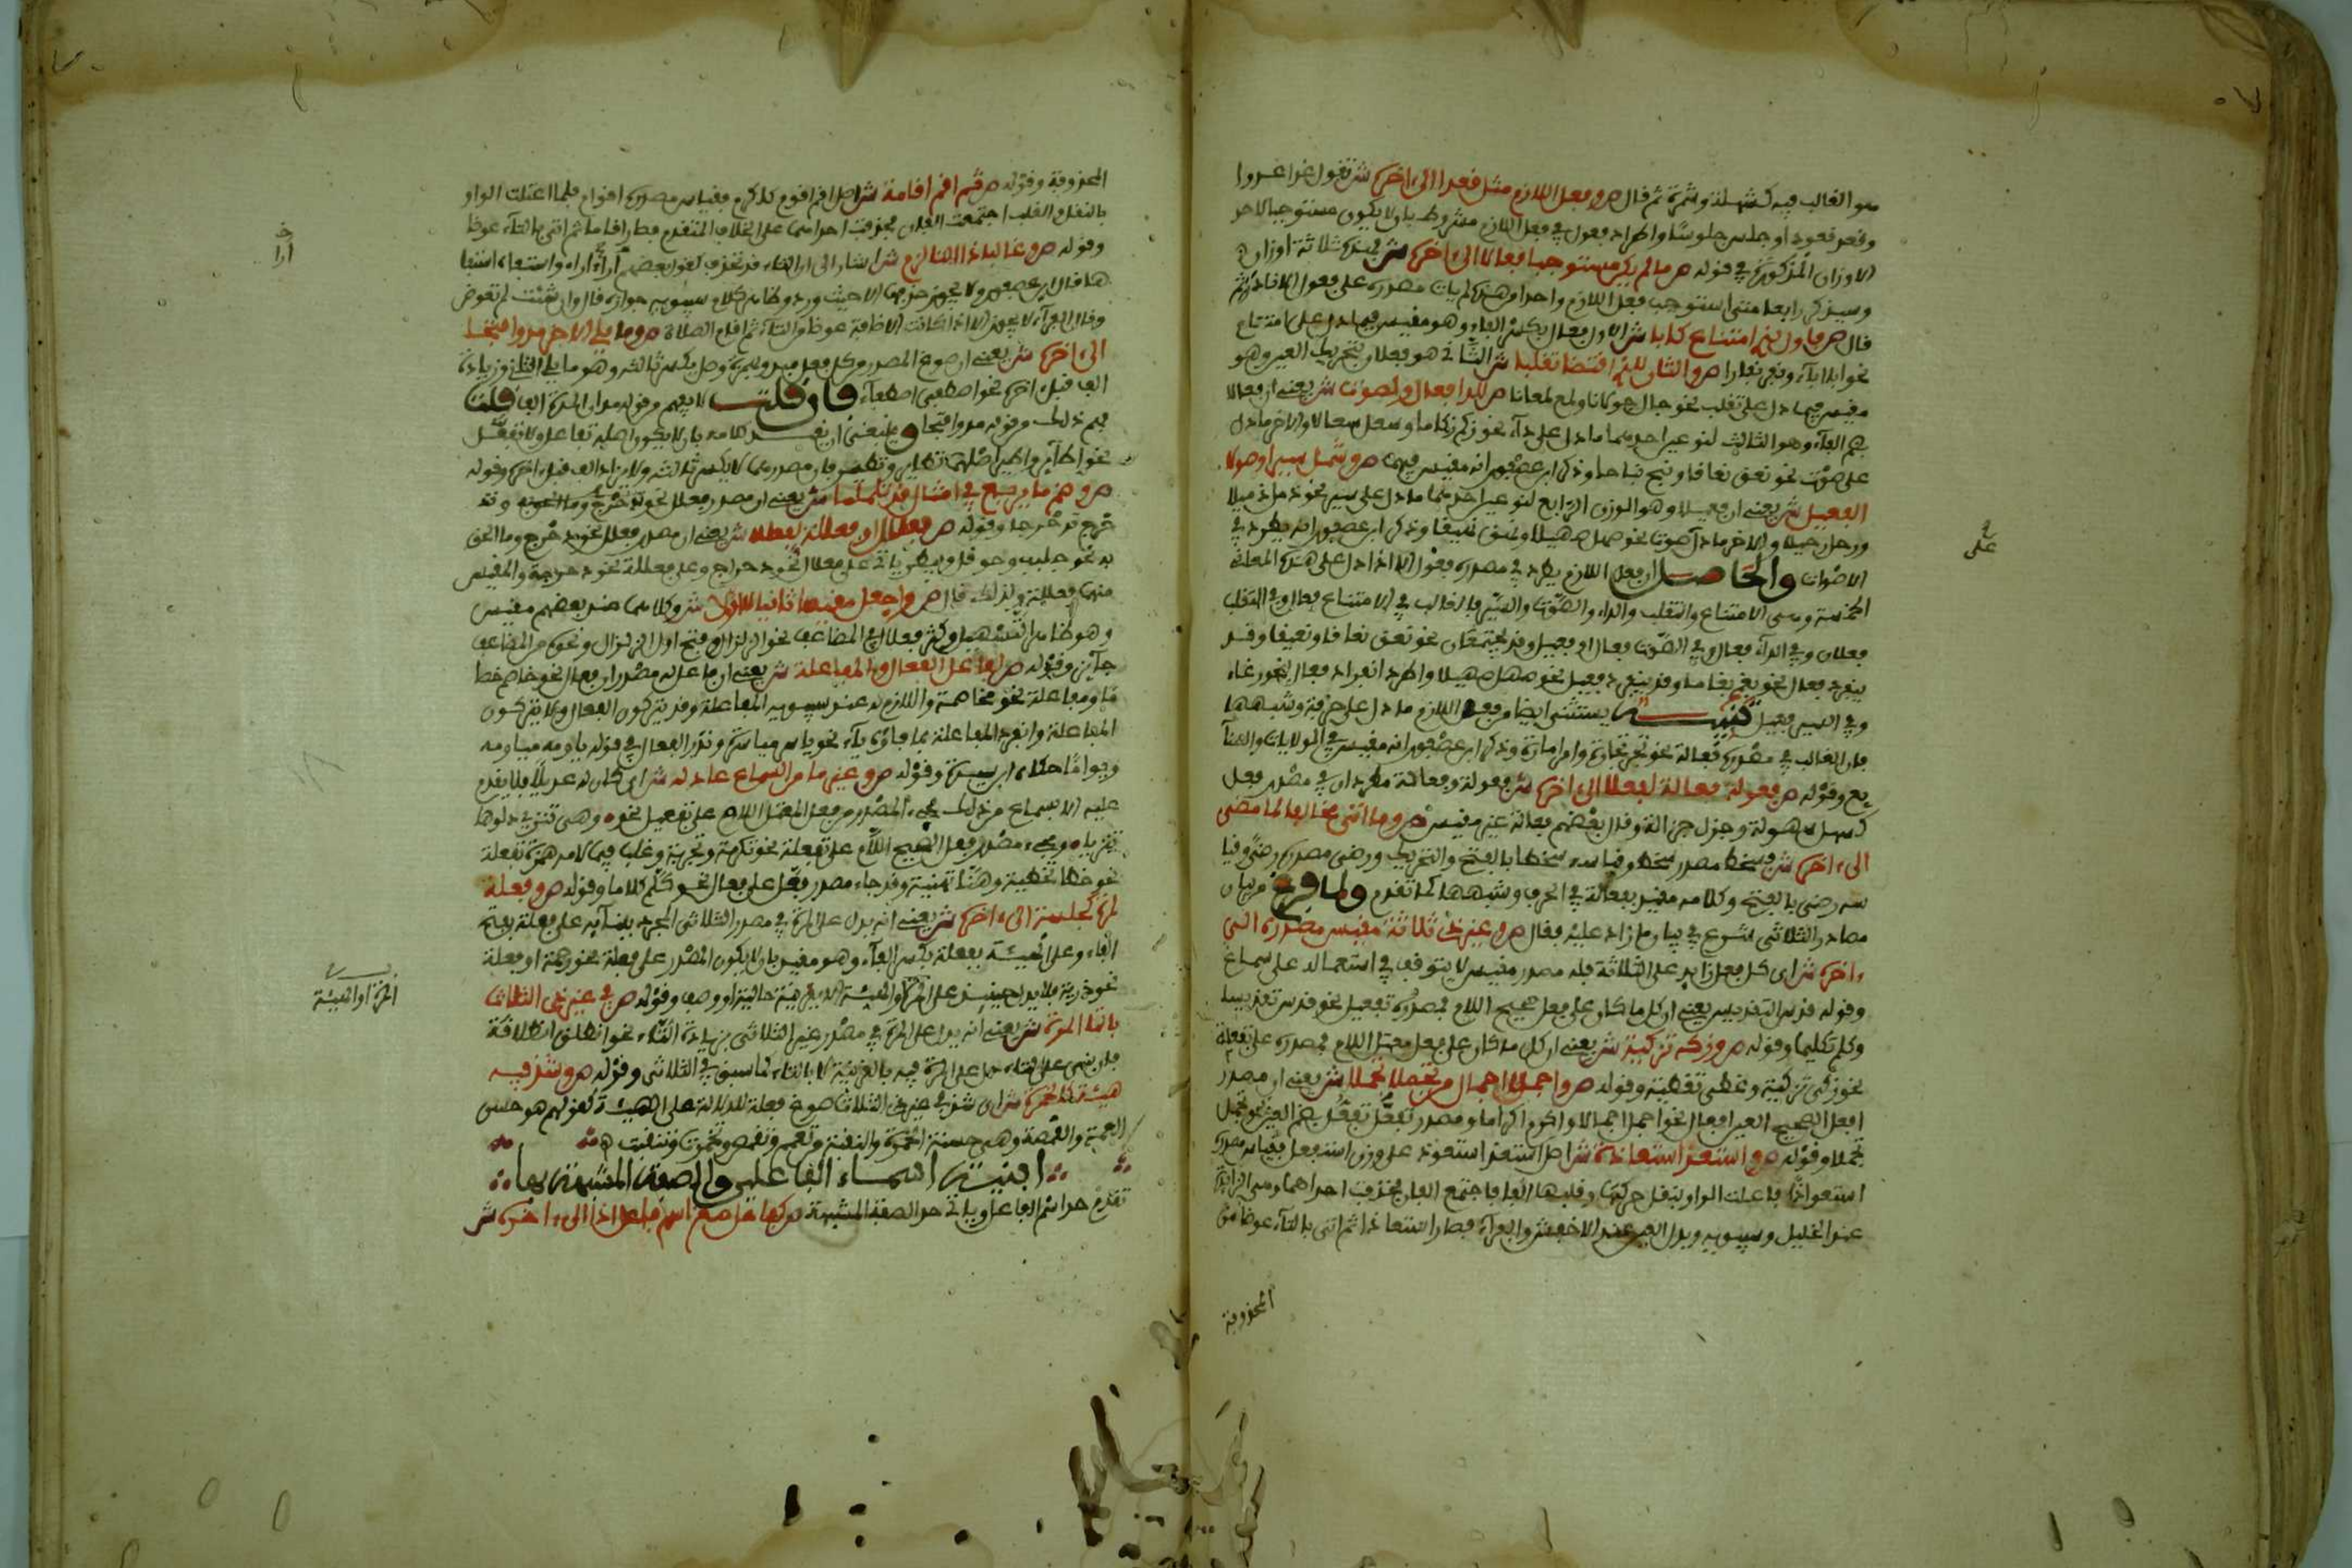 هو الغالب فيه كشهلة وشمة ثم قال ص وفعل اللازم مثل فعدا الى اخره ش تقول غدا غدوا
وقعد قعودا وجلس جلوسا واطراد فعول في فعل اللازم مشروط بان لا يكون مستوجبا لاحد
الاوزان المذكورة في قوله ص ما لم يكن مستوجبا فعالا الى اخره ش فيه ثلاثة اوزان
وسيذكر رابعا متى استوجب فعل اللازم واحدا من هذه لم يات مصدره على فعول الا نادرا ثم
قال ص فاول لذي امتناع كابا ش الاول فعال بكسر الفاء وهو مقيس فيما دل على امتناع
نحو ابا اباء ونفر نفارا ص والثان للذي اقتضا تقلبا ش الثاني هو فعلان بتحريك العين وهو
مقيس فيما دل على تقلب نحو جال جولانا ولمع لمعانا ص للدا فعال او لصوت ش يعني ان فعالا
بضم الفاء وهو الثالث لنوعين احدهما ما دل على داء نحو زكم زكاما وسعل سعالا والاخر ما دل
على صوت نحو نعق نعاقا ونبح نباحا وذكر ابن عصفور انه مقيس فيهما ص وشمل سيرا وصوتا
الفعيل ش يعني ان فعيلا وهو الوزن الرابع لنوعين احدهما ما دل على سير نحو ذمل ذميلا
ورحل رحيلا والاخر ما دل على صوت نحو صهل صهيلا ونعق نعيقا وذكر ابن عصفور انه يطرد في
الاصوات والحاصل ان فعل اللازم يطرد في مصدره فعول الا اذا دل على هذه المعاني
الخمسة وهي الامتناع والتقلب والداء والصوت والسير فالغالب في الامتناع فعال وفي التقلب
فعلان وفي الداء فعال وفي الصوت فعال او فعيل وقد يجتمعان نحو نعق نعاقا ونعيقا وقد
ينفرد فعال نحو بغم بغاما وقد ينفرد فعيل نحو صهل صهيلا واطرد انفراد فعال نحو رغاء
وفي السير فعيل تنبيه يستثنى ايضا من فعل اللازم ما دل على حرفة وشبهها
فان الغالب في مصدره فعالة نحو تجر تجارة وامر امارة وذكر ابن عصفور انه مقيس في الولايات والصنائع
وقوله ص فعولة فعالة لفعلا الى اخره ش فعولة وفعالة مطردان في مصدر فعل
كسهل سهولة وجزل جزالة وقال بعضهم فعالة غير مقيس ص وما اتى مخالفا لما مضى
الى اخره ش فسخط مصدر سخط وقياسه سخطا بالفتح والتحريك ورضى مصدر رضي وقيا
سه رضى بالفتح وكلامه مقيس بفعالة في الحرف وشبهها كما تقدم ولما فرغ من بيان
مصادر الثلاثي شرع في بيان ما زاد عليه فقال ص وغير ذي ثلاثة مقيس مصدره الى
اخره ش اى كل فعل زايد على الثلاثة فله مصدر مقيس لا يتوقف في استعماله على سماع
وقوله قدس التقديس يعني ان كل ما كان على فعل صحيح اللام فمصدره تفعيل نحو قدس تقديسا
وكلم تكليما وقوله ص وزكه تزكية ش يعني ان كل ما كان على فعل معتل اللام فمصدره على تفعلة
نحو زكى تزكية وغطى تغطية وقوله ص واجملا اجمال من تجملا تجملا ش يعني ان مصدر
افعل الصحيح العين افعال نحو اجمل اجمالا واكرم اكراما ومصدر تفعل تفعل بضم العين نحو تجمل
تجملا وقوله ص واستعذ استعاذة ش اصل استعذ استعوذ على وزن استفعل فقياس مصدره
استعواذا فاعلت الواو بنقل حركتها وقلبها الفا فاجتمع الفان فحذفت احداهما وهي الزايدة
عند الخليل وسيبويه وبدل العين عند الاخفش والفراء فصار استعاذا ثم اتى بالتاء عوضا من
المحذوفة
على
المحذوفة وقوله ص ثم اقم اقامة ش اصل اقم اقوم كاكرم فقياس مصدره اقوام فلما اعتلت الواو
بالنقل والقلب اجتمعت الفان فحذفت احداهما على الخلاف المتقدم فصار اقاما ثم اتى بالتاء عوضا
وقوله ص وغالبا ذا التا لزم ش اشار الى ان التاء قد تحذف كقول بعضهم اراء اراء واستفاء استفا
ها قال ابن عصفور ولا يجوز حذفها الا حيث ورد وظاهر كلام سيبويه جوازه قال وان شئت لم تعوض
وقال الفراء لا يجوز الا اذا كانت الاضافة عوضا من التاء ثم اقام الصلاة ص وما يلي الاخر مد وافتحا
الى اخره ش يعني ان صوغ المصدر من كل فعل مبدو بهمزة وصل بكسر ثالثه وهو ما يلي الثاني وزيادة
الف قبل اخره نحو اصطفى اصطفاء فان قلت لا يفهم من قوله مد ان المدة الف قلت
فهم ذلك من قوله مد وافتحا وينبغي ان يقيد كلامه بان لا يكون اصله تفاعل ولا تفعل
نحو اطاير واطير اصلهما تطاير وتطير فان مصدرهما لا يكسر ثالثه ولا يزاد الف قبل اخره وقوله
ص وضم ما يربع في امثال قد تلملما ش يعني ان مصدر تفعلل نحو تدحرج وما الحق به وقد
خرج تدحرجا وقوله ص فعلال او فعللة لفعللا ش يعني ان مصدر فعلل نحو دحرج وما الحق
به نحو جلبب وحوقل وبيطر ياتي على فعلال نحو دحراج وعلى فعللة نحو دحرجة والمقيس
منهما فعللة ولذلك قال ص واجعل مقيسا ثانيا لا اولا ش وكلاهما عند بعضهم مقيس
وهو ظاهر التسهيل وكثر فعلال في المضاعف نحو الزلزال وفتح اول الزلزال ونحوه من المضاعف
جائز وقوله ص لفاعل الفعال والمفاعلة ش يعني ان فاعل له مصدران فعال نحو خاصم خصا
ما ومفاعلة نحو مخاصمة واللازم له عند سيبويه المفاعلة وقد يتركون الفعال ولا يتركون
المفاعلة وانفرد المفاعلة بما فاؤه ياء نحو ياسر مياسرة وندر الفعال في قوله ياومه مياومة
ويواما حكاه ابن سيده وقوله ص وغير ما مر السماع عادله ش اى كان له عديلا فلا يقدم
عليه الا بسماع من ذلك مجيء المصدر من فعل المعتل اللام على تفعيل نحو وهي تنزي دلوها
تنزيا ومجيء مصدر فعل الصحيح اللام على تفعلة نحو تكرمة وتجربة وغلب فيما لامه همزة تفعلة
نحو خطا تخطية وهنا تهنية وقد جاء مصدر فعل على فعال نحو كلم كلاما وقوله ص وفعلة
لمرة كجلسة الى اخره ش يعني انه يدل على المرة في مصدر الثلاثي المجرد ببنائه على فعلة بفتح
الفاء وعلى الهيئة بفعلة بكسر الفاء وهو مقيس بان لا يكون المصدر على فعلة نحو رحمة او فعلة
نحو ذربة فلا يدل حينئذ على المرة والهيئة الا بقرينة حالية او وصف وقوله ص في غير ذي الثلاث
بالتا المرة ش يعني انه يدل على المرة في مصدر غير الثلاثي بزيادة التاء نحو انطلق انطلاقة
فان بنى على التاء دل على المرة فيه بالقرينة لا بالتاء كما سبق في الثلاثي وقوله ص وشذ فيه
هيئة كالخمرة ش اى شذ في غير ذي الثلاث صوغ فعلة للدلالة على الهيئة كقولهم هو حسن
العمة والقمصة وهي حسنة الخمرة والنقبة من تعمم وتقمص وتخمرت وتنقبت
ابنية اسماء الفاعلين والصفة المشبهة بها
تقدم حد اسم الفاعل وياتي حد الصفة المشبهة ص كفاعل صغ اسم فاعل اذا الى اخره ش
ارا
المرة او الهيئة